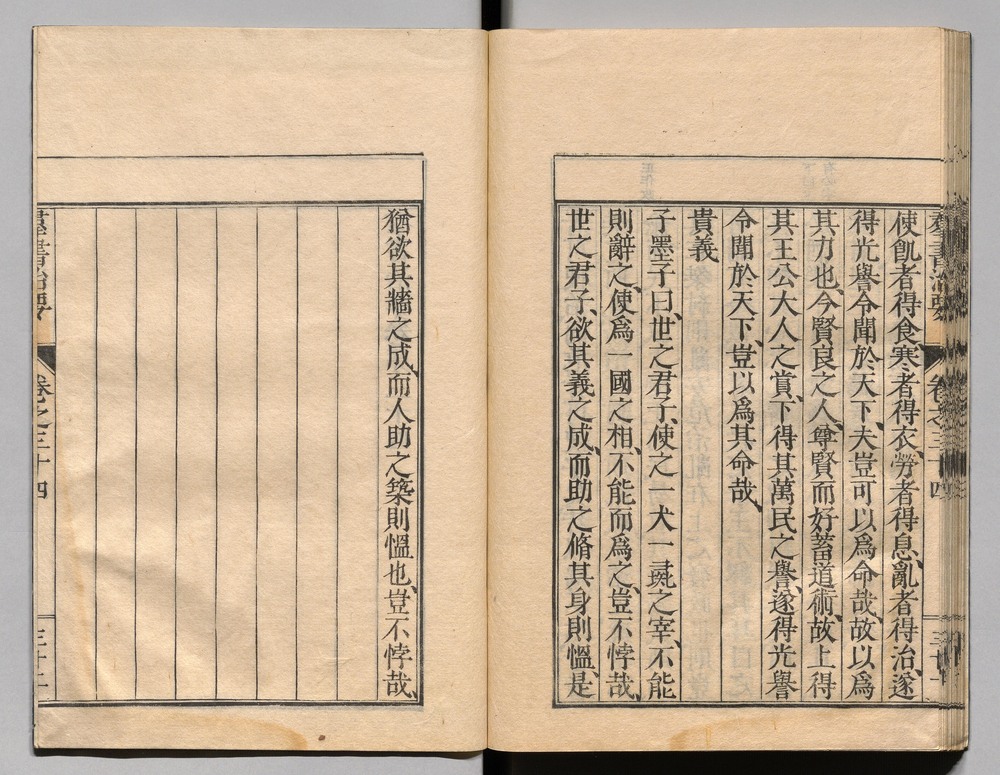 使飢者得食、寒者得衣、勞者得息、亂者得治、遂
得光譽令聞於天下、夫豈可以爲命哉、故以爲
其力也、今賢良之人、尊賢而好蓄道術、故上得
其王公大人之賞、下得其萬民之譽、遂得光譽
令聞於天下、豈以爲其命哉、
貴義
子墨子曰、世之君子、使之一犬一彘之宰、不能
則辭之、使爲一國之相、不能而爲之、豈不悖哉、
世之君子、欲其義之成、而助之脩其身則慍、是
猶欲其牆之成、而人助之築則慍也、豈不悖哉、
羣書治要
卷之三十四
三十二